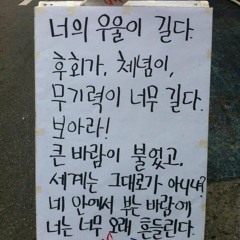 너의 우울이 길다.
후회가, 체념이,
무기력이 너무 길다.
보아라!
큰 바람이 불었고,
세계는 그대로가 아니냐?
네 안에서 부는 바람에
너는 너무 오래 흔들린다.